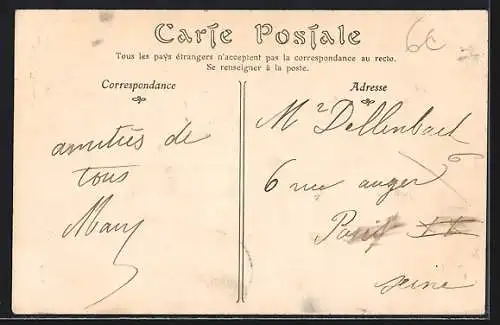 Carte Postale
6€
Tous les pays étrangers n'acceptent pas la correspondance au recto.
Se renseigner à la poste.
Correspondance
amitiés de
tous
Mary
Adresse
Mr Dellenbach
6 rue auger
Paris
Seine